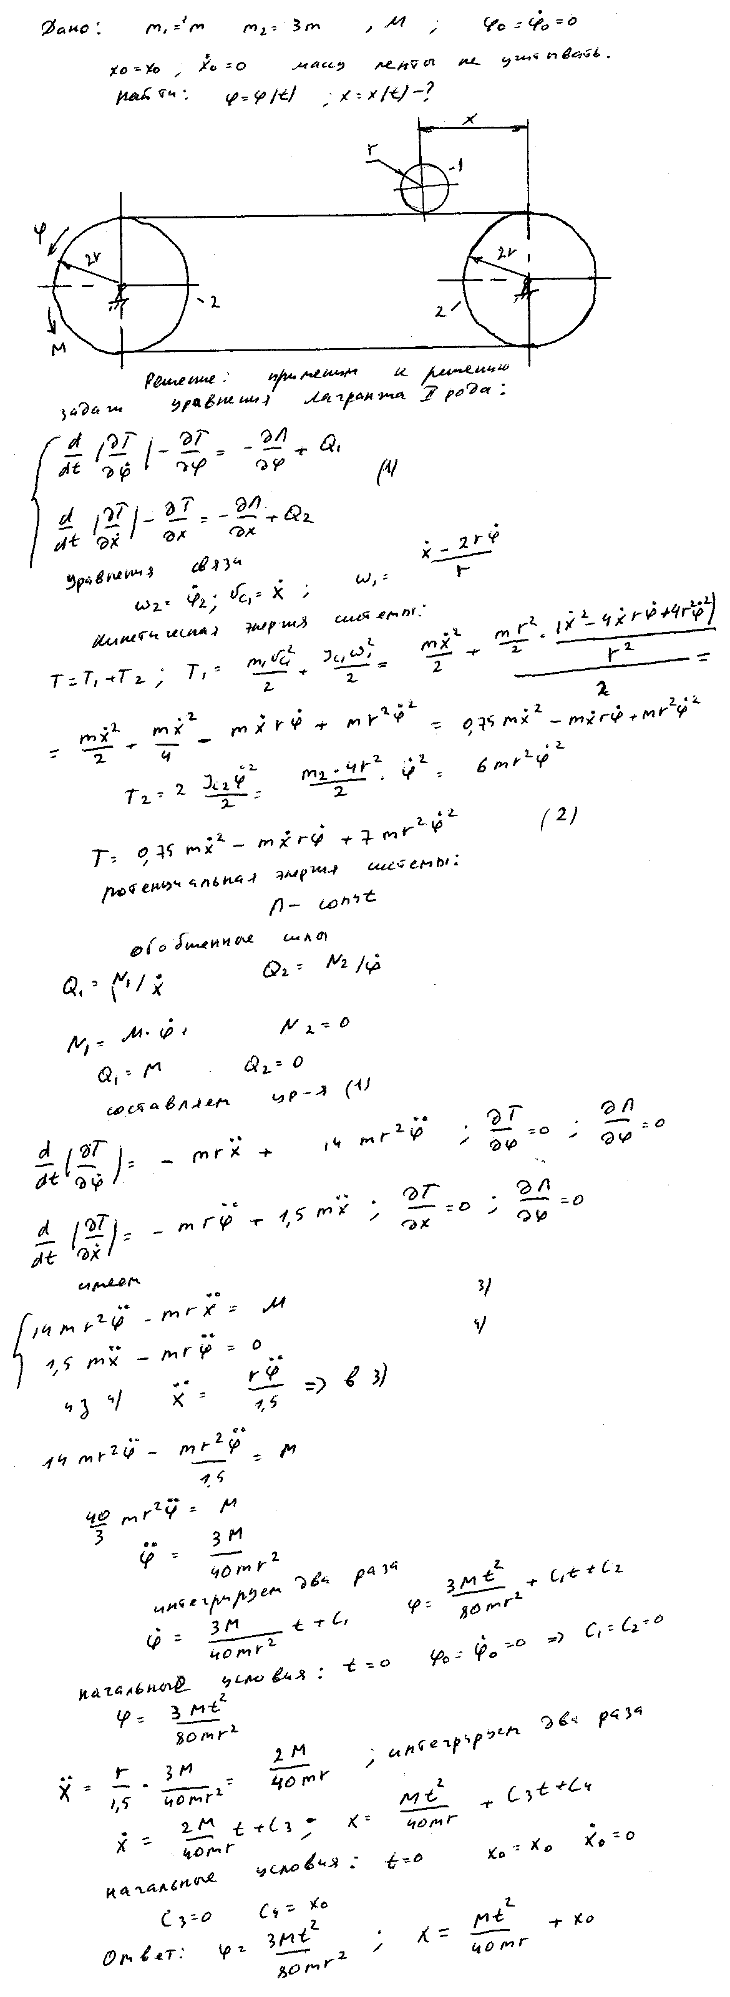 Дано: m₁ = m m₂ = 3m , M ; φ₀ = φ̇₀ = 0
x₀ = x₀ ; ẋ₀ = 0 массу ленты не учитывать.
найти: φ = φ(t) ; x = x(t) - ?
x
r
1
φ
2r
2r
2
2
M
Решение: применим к решению
задачи уравнения Лагранжа II рода:
d/dt (∂T/∂φ̇) - ∂T/∂φ = -∂П/∂φ + Q₁
(1)
d/dt (∂T/∂ẋ) - ∂T/∂x = -∂П/∂x + Q₂
уравнения связи
ω₂ = φ̇₂ ; v_c₁ = ẋ ; ω₁ = (ẋ - 2rφ̇)/r
кинетическая энергия системы:
T = T₁ + T₂ ; T₁ = m₁v_c₁²/2 + J_c₁ω₁²/2 = mẋ²/2 + mr²/2 · (ẋ² - 4ẋrφ̇ + 4r²φ̇²)/r² / 2 =
= mẋ²/2 + mẋ²/4 - mẋrφ̇ + mr²φ̇² = 0,75mẋ² - mẋrφ̇ + mr²φ̇²
T₂ = 2 J_c₂φ̇²/2 = m₂·4r²/2 · φ̇² = 6mr²φ̇²
T = 0,75mẋ² - mẋrφ̇ + 7mr²φ̇² (2)
потенциальная энергия системы:
П - const
обобщенные силы
Q₁ = N₁/ẋ Q₂ = N₂/φ̇
N₁ = M·φ̇, N₂ = 0
Q₁ = M Q₂ = 0
составляем ур-я (1)
d/dt (∂T/∂φ̇) = - mrẍ + 14mr²φ̈ ; ∂T/∂φ = 0 ; ∂П/∂φ = 0
d/dt (∂T/∂ẋ) = - mrφ̈ + 1,5mẍ ; ∂T/∂x = 0 ; ∂П/∂φ = 0
имеем
14mr²φ̈ - mrẍ = M 3)
1,5mẍ - mrφ̈ = 0 4)
из 4) ẍ = rφ̈/1,5 => в 3)
14mr²φ̈ - mr²φ̈/1,5 = M
40/3 mr²φ̈ = M
φ̈ = 3M/40mr²
интегрируем два раза
φ̇ = 3M/40mr² t + C₁ φ = 3Mt²/80mr² + C₁t + C₂
начальные условия: t = 0 φ₀ = φ̇₀ = 0 => C₁ = C₂ = 0
φ = 3Mt²/80mr²
ẍ = r/1,5 · 3M/40mr² = 2M/40mr ; интегрируем два раза
ẋ = 2M/40mr t + C₃ ; x = Mt²/40mr + C₃t + C₄
начальные условия: t = 0 x₀ = x₀ ẋ₀ = 0
C₃ = 0 C₄ = x₀
Ответ: φ = 3Mt²/80mr² ; x = Mt²/40mr + x₀